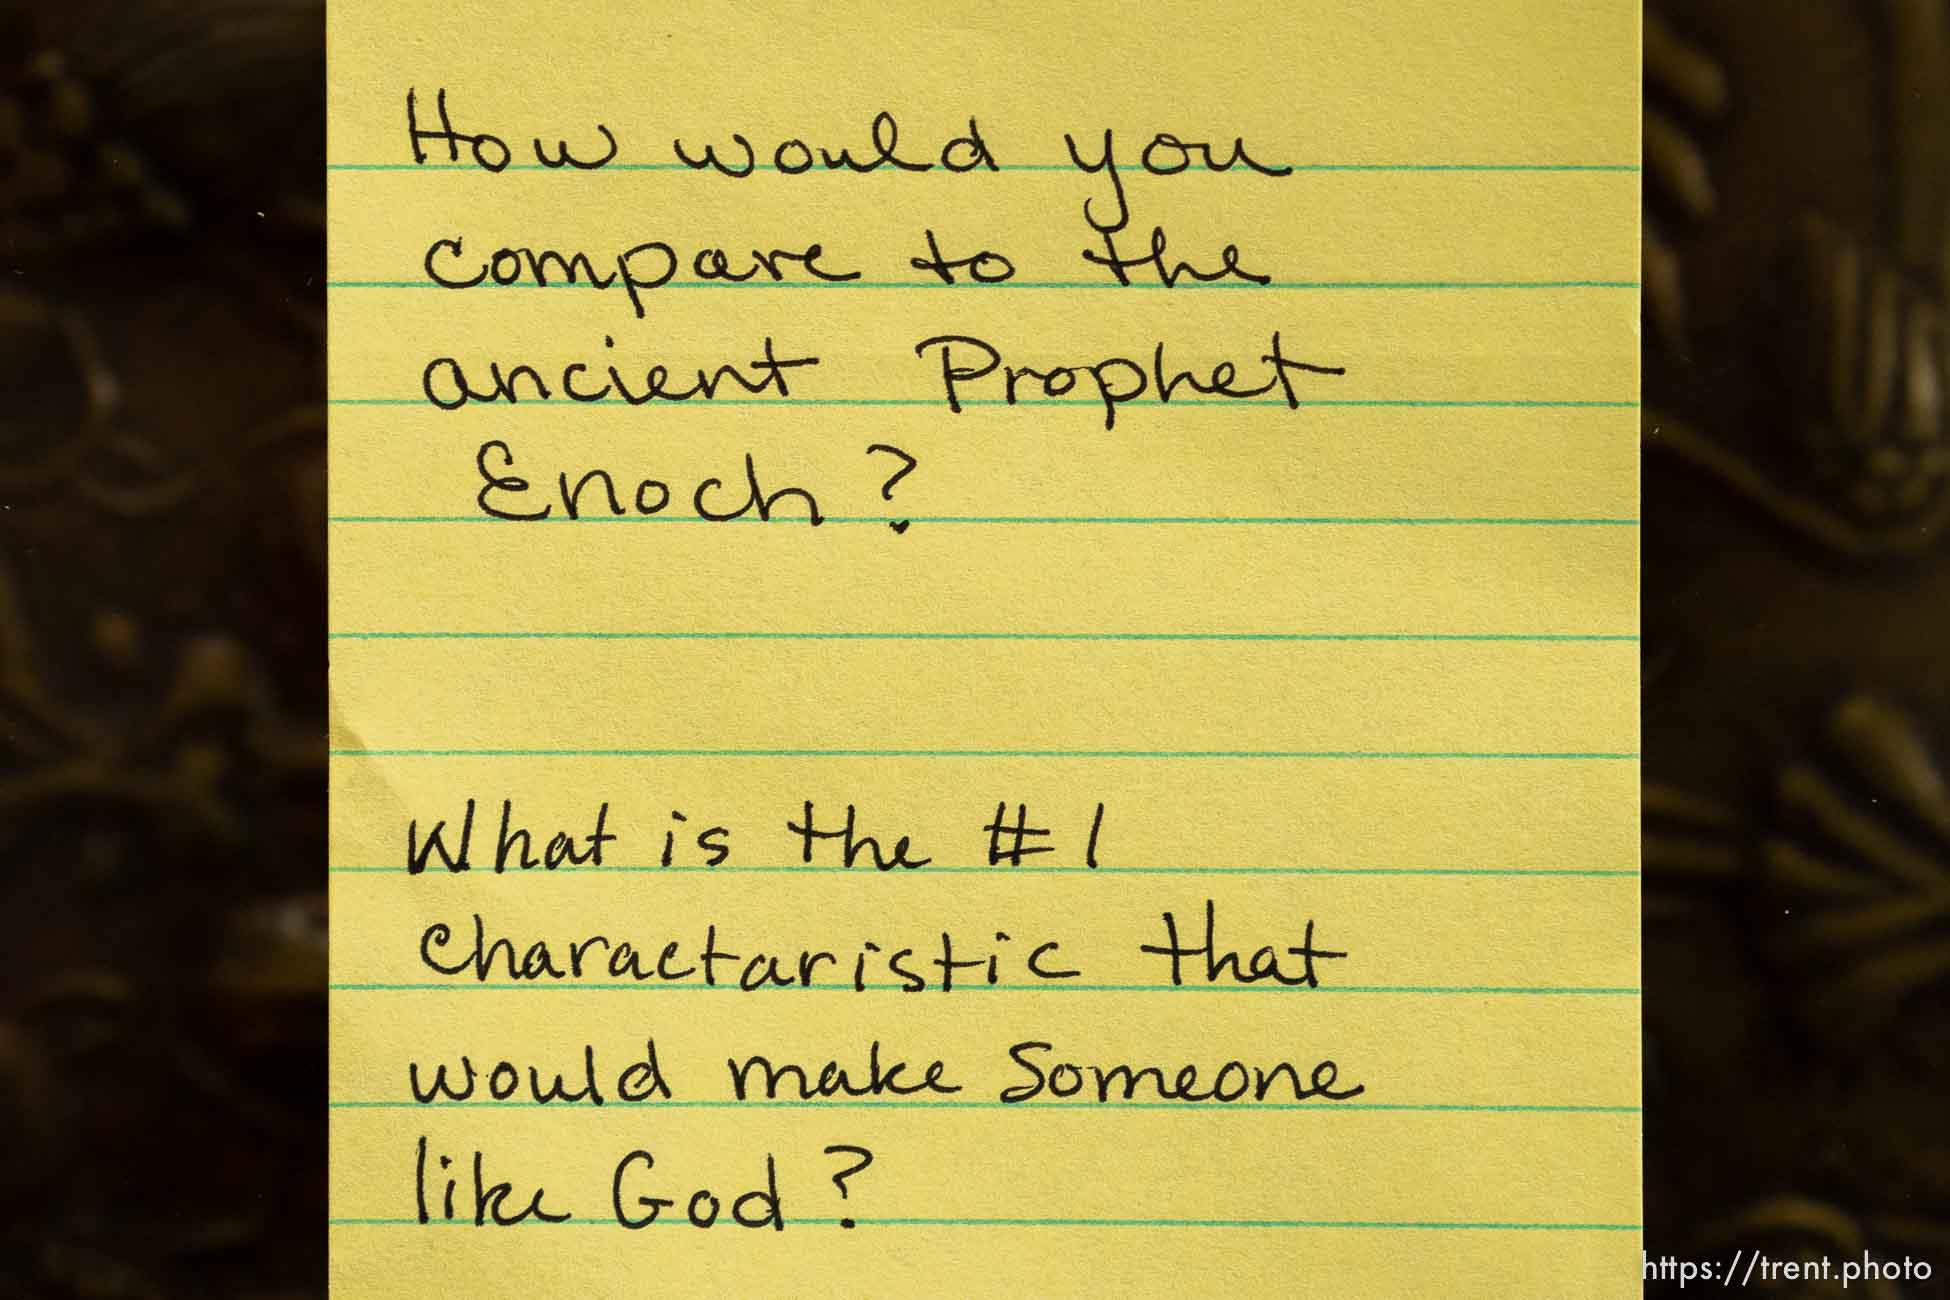 How would you
compare to the
ancient Prophet
Enoch?
What is the #1
charactaristic that
would make Someone
like God?
https://trent.photo